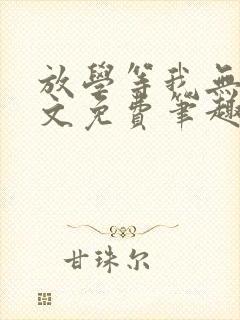 放學等我無
文免費筆趣
甘珠尔